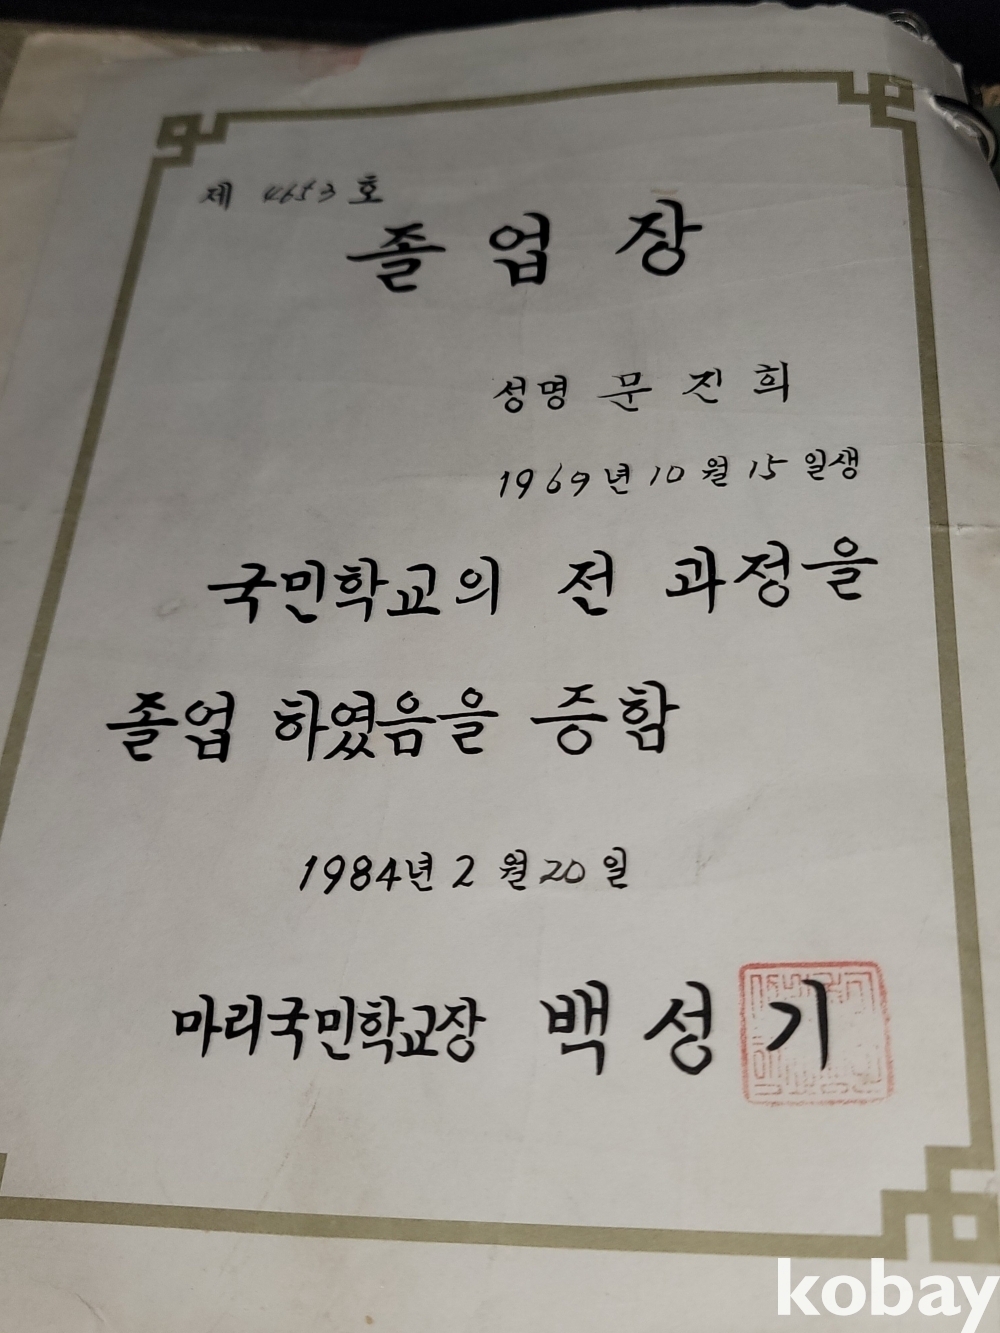 제 4653 호
졸업장
성명 문진희
1969년 10월 15일생
국민학교의 전 과정을
졸업 하였음을 증함
1984년 2월 20일
마리국민학교장 백성기
kobay